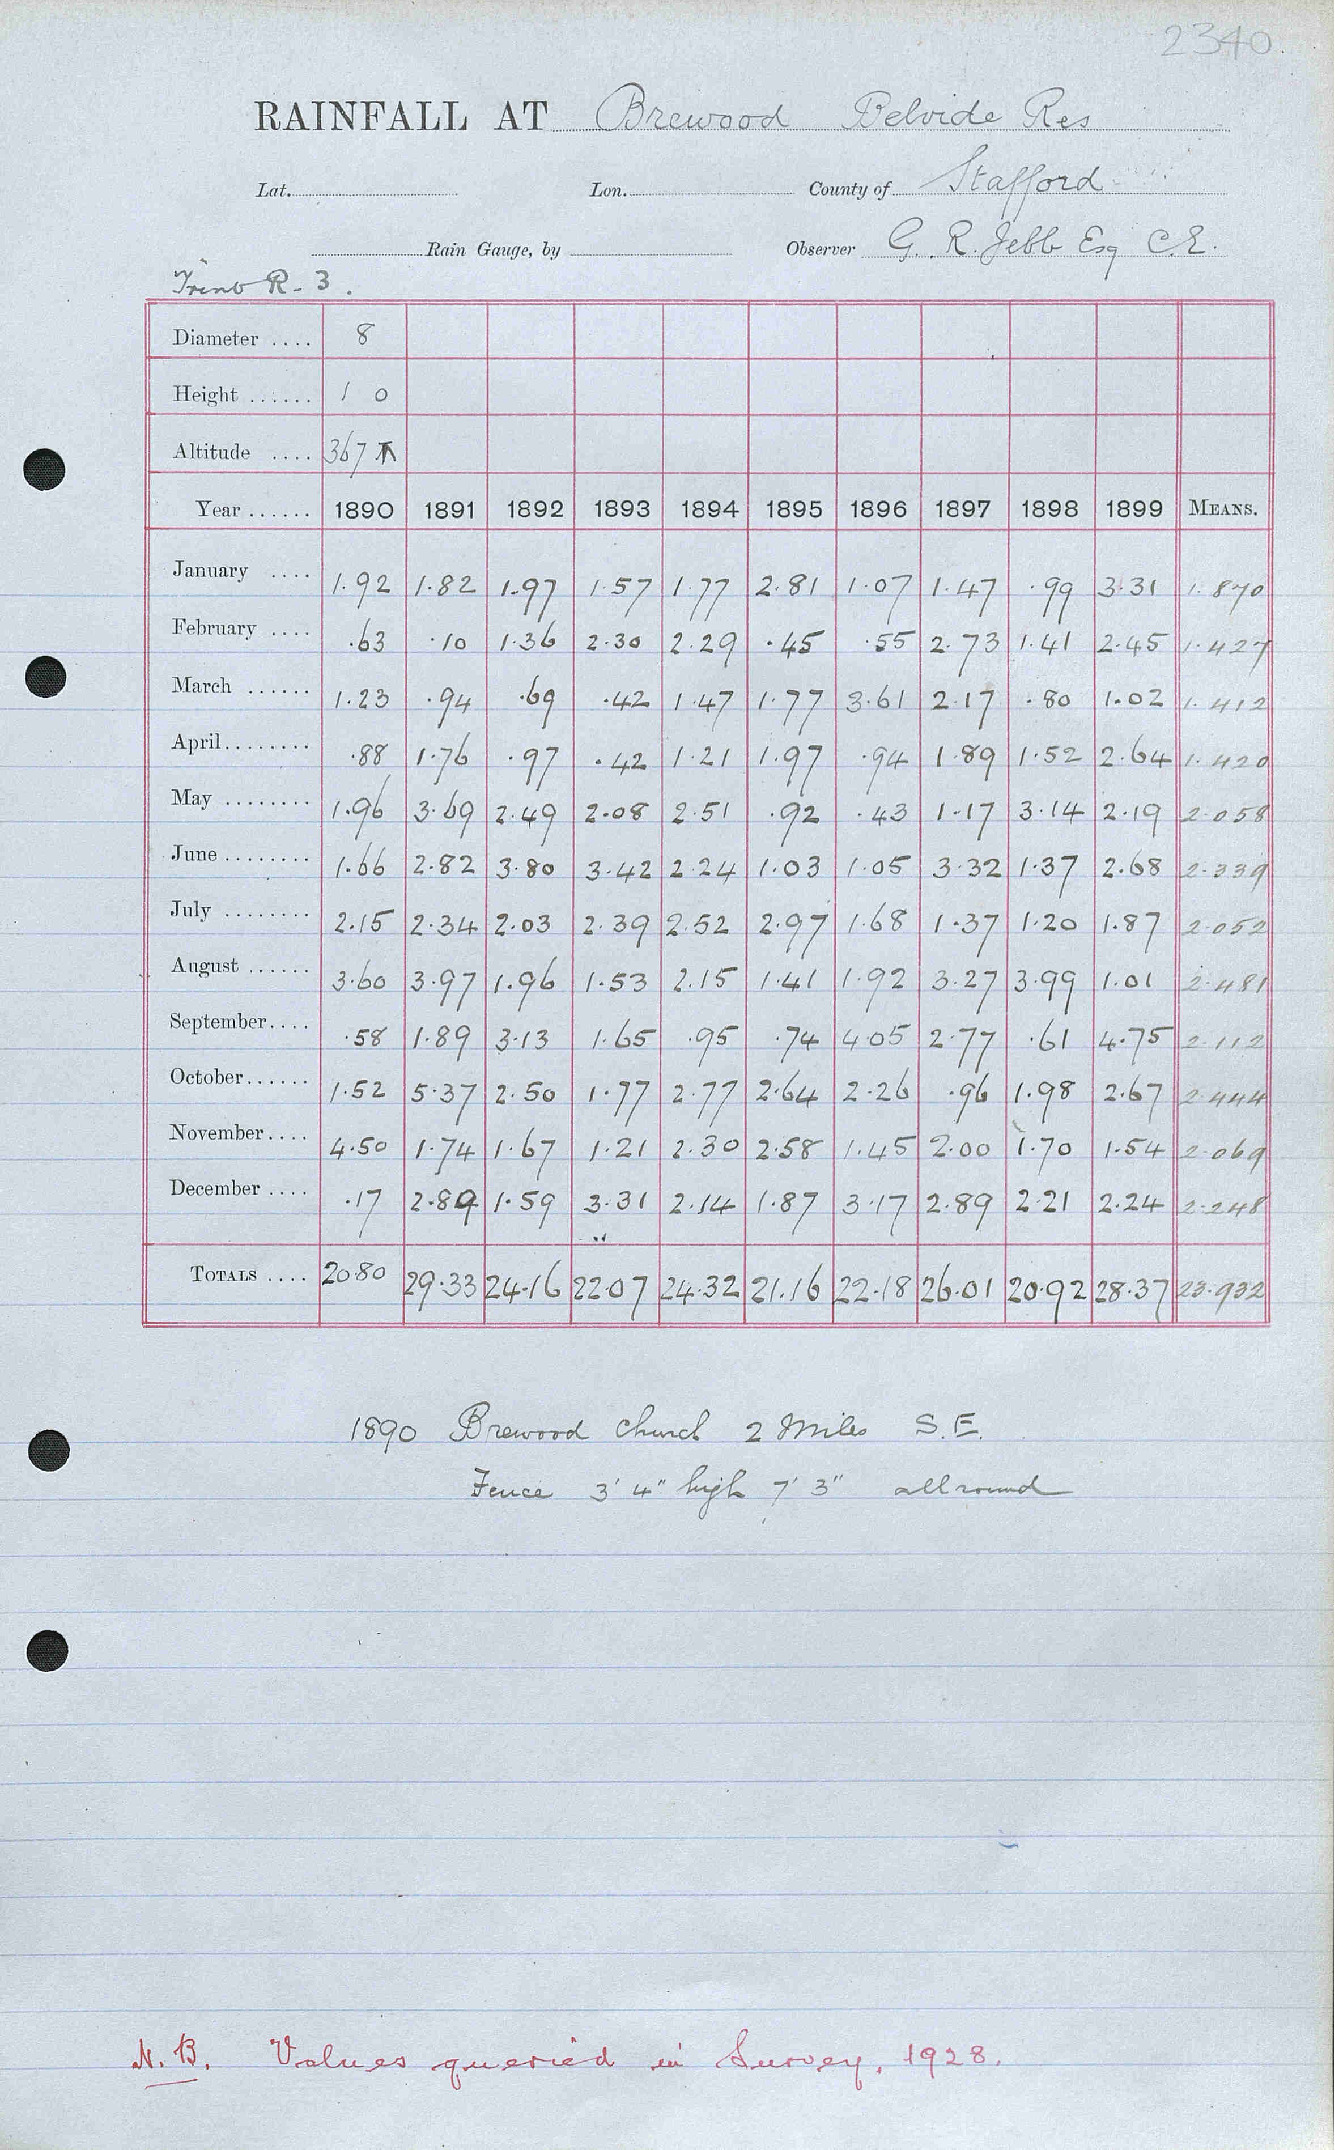 2340.
RAINFALL AT Brewood Belvide Res
Lat. Lon. County of Stafford
Rain Gauge, by Observer G. R. Jebb Esq C.E.
Trent R. 3.
Diameter .... 8
Height ...... 1 0
Altitude .... 367 T
Year ...... 1890 1891 1892 1893 1894 1895 1896 1897 1898 1899 MEANS.
January .... 1.92 1.82 1.97 1.57 1.77 2.81 1.07 1.47 .99 3.31 1.870
February .... .63 .10 1.36 2.30 2.29 .45 .55 2.73 1.41 2.45 1.427
March ...... 1.23 .94 .69 .42 1.47 1.77 3.61 2.17 .80 1.02 1.412
April........ .88 1.76 .97 .42 1.21 1.97 .94 1.89 1.52 2.64 1.420
May ........ 1.96 3.69 2.49 2.08 2.51 .92 .43 1.17 3.14 2.19 2.058
June ........ 1.66 2.82 3.80 3.42 2.24 1.03 1.05 3.32 1.37 2.68 2.339
July ........ 2.15 2.34 2.03 2.39 2.52 2.97 1.68 1.37 1.20 1.87 2.052
August ...... 3.60 3.97 1.96 1.53 2.15 1.41 1.92 3.27 3.99 1.01 2.481
September.... .58 1.89 3.13 1.65 .95 .74 4.05 2.77 .61 4.75 2.112
October...... 1.52 5.37 2.50 1.77 2.77 2.64 2.26 .96 1.98 2.67 2.444
November.... 4.50 1.74 1.67 1.21 2.30 2.58 1.45 2.00 1.70 1.54 2.069
December .... .17 2.89 1.59 3.31 2.14 1.87 3.17 2.89 2.21 2.24 2.248
TOTALS .... 20.80 29.33 24.16 22.07 24.32 21.16 22.18 26.01 20.92 28.37 23.932
1890 Brewood church 2 Miles S.E.
Fence 3' 4" high 7' 3" all round
N.B. Values queried in Survey, 1928.